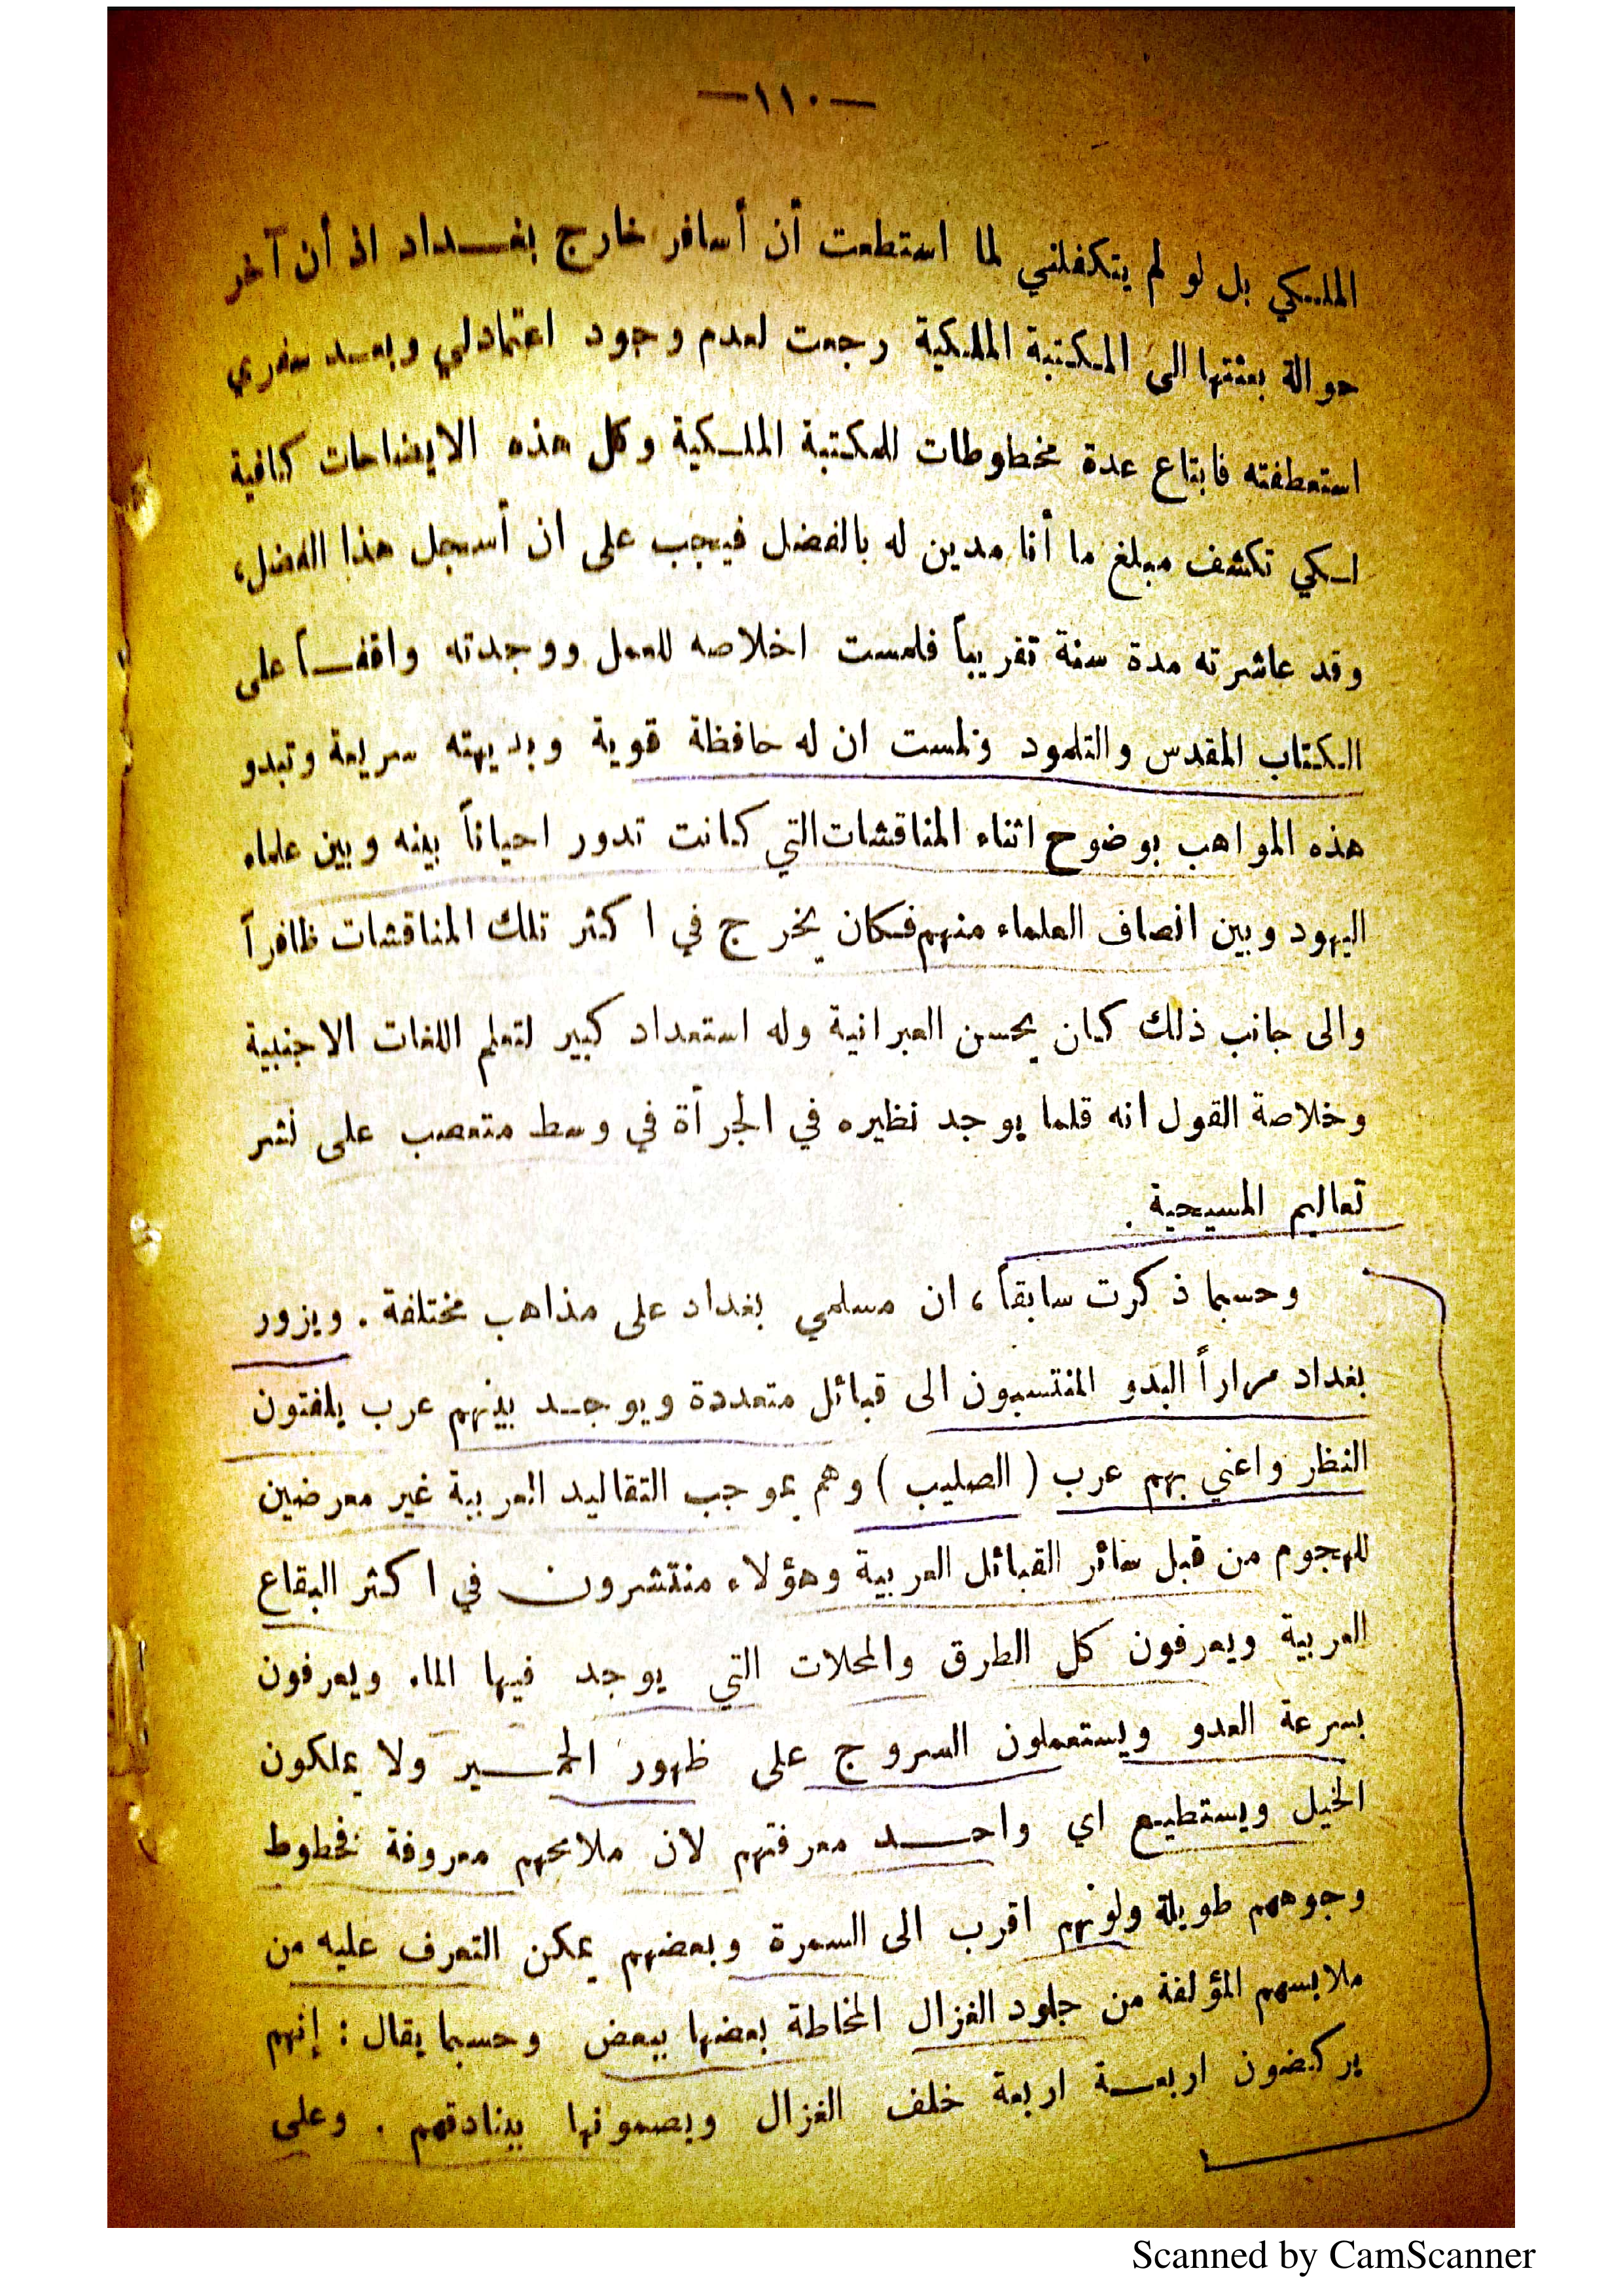 —١١٠—
الملكي بل لو لم يتكفلني لما استطعت أن أسافر خارج بغداد اذ أن آخر
حوالة بعثتها الى المكتبة الملكية رجعت لعدم وجود اعتمادلي وبعد سفري
استعطفته فابتاع عدة مخطوطات للمكتبة الملكية وكل هذه الايضاحات كافية
لكي تكشف مبلغ ما أنا مدين له بالفضل فيجب على ان أسجل هذا الفضل،
وقد عاشرته مدة سنة تقريباً فلمست اخلاصه للعمل ووجدته واقفاً على
الكتاب المقدس والتلمود ولمست ان له حافظة قوية وبديهته سريعة وتبدو
هذه المواهب بوضوح اثناء المناقشات التي كانت تدور احياناً بينه وبين علماء
اليهود وبين انصاف العلماء منهم فكان يخرج في اكثر تلك المناقشات ظافراً
والى جانب ذلك كان يحسن العبرانية وله استعداد كبير لتعلم اللغات الاجنبية
وخلاصة القول انه قلما يوجد نظيره في الجرأة في وسط متعصب على نشر
تعاليم المسيحية .
وحسبما ذكرت سابقاً ، ان مسلمي بغداد على مذاهب مختلفة . ويزور
بغداد مراراً البدو المنتسبون الى قبائل متعددة ويوجد بينهم عرب يلفتون
النظر واعني بهم عرب ( الصليب ) وهم بموجب التقاليد العربية غير معرضين
للهجوم من قبل سائر القبائل العربية وهؤلاء منتشرون في اكثر البقاع
العربية ويعرفون كل الطرق والمحلات التي يوجد فيها الماء ويعرفون
بسرعة العدو ويستعملون السروج على ظهور الحمير ولا يملكون
الخيل ويستطيع اي واحد معرفتهم لان ملامحهم معروفة فخطوط
وجوههم طويلة ولونهم اقرب الى السمرة وبعضهم يمكن التعرف عليه من
ملابسهم المؤلفة من جلود الغزال المخاطة بعضها ببعض وحسبما يقال : إنهم
يركضون اربعة اربعة خلف الغزال ويصمونها ببنادقهم . وعلى
Scanned by CamScanner